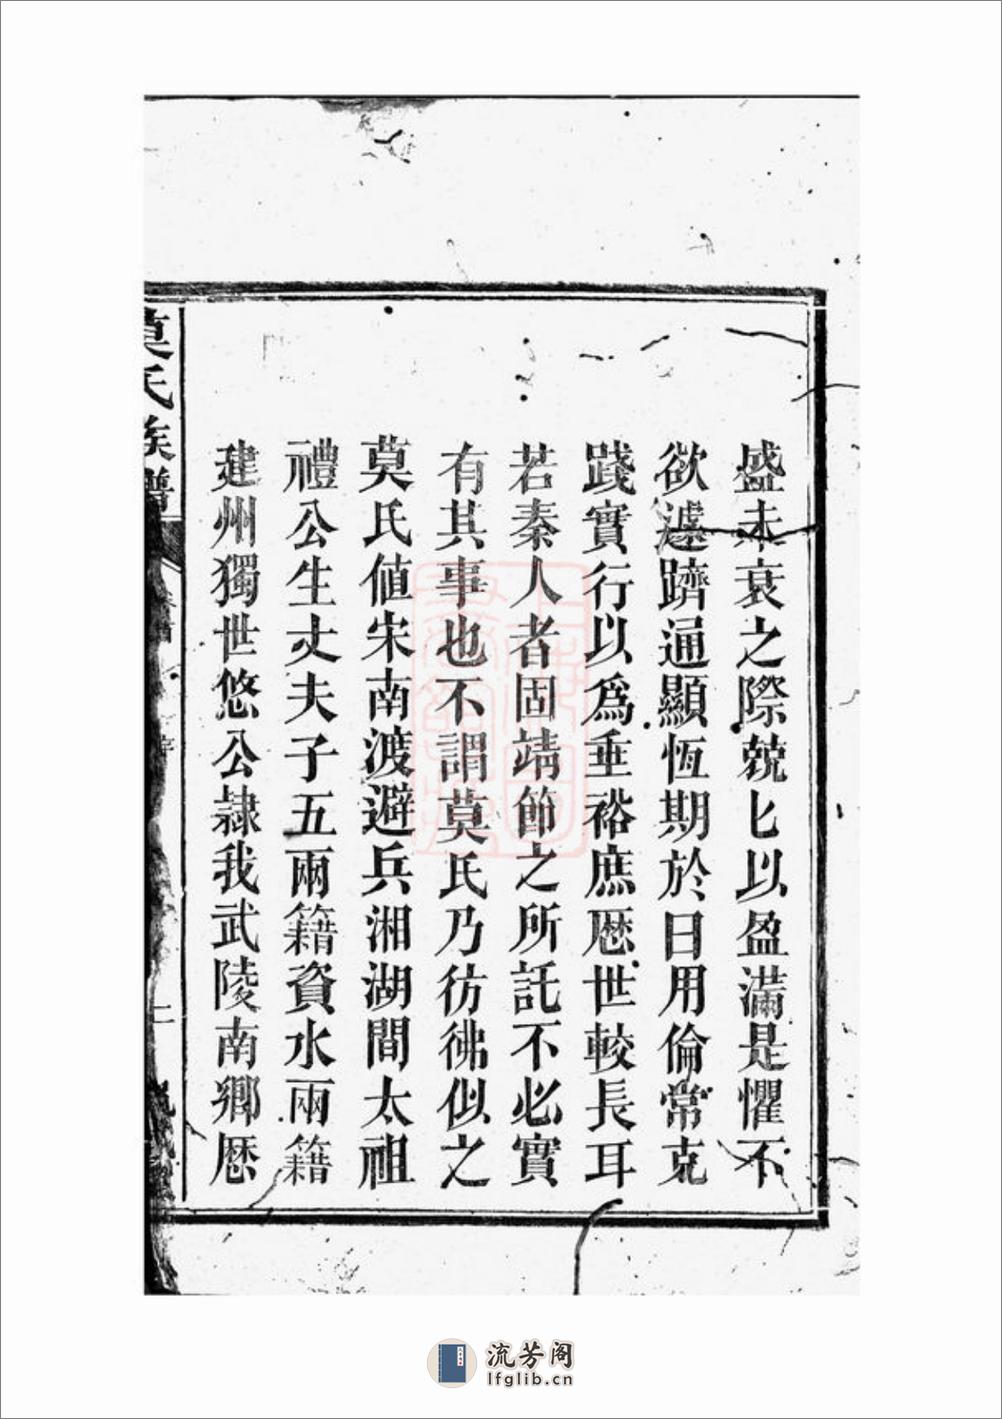 盛未衰之際兢匕以盈滿是懼不
欲遽躋通顯恆期於日用倫常克
踐實行以爲垂裕庶厯世較長耳
若秦人者固靖節之所託不必實
有其事也不謂莫氏乃彷彿似之
莫氏値宋南渡避兵湘湖間太祖
禮公生丈夫子五兩籍資水兩籍
建州獨世悠公隷我武陵南鄉厯
莫氏族譜
二
流芳阁
lfglib.cn